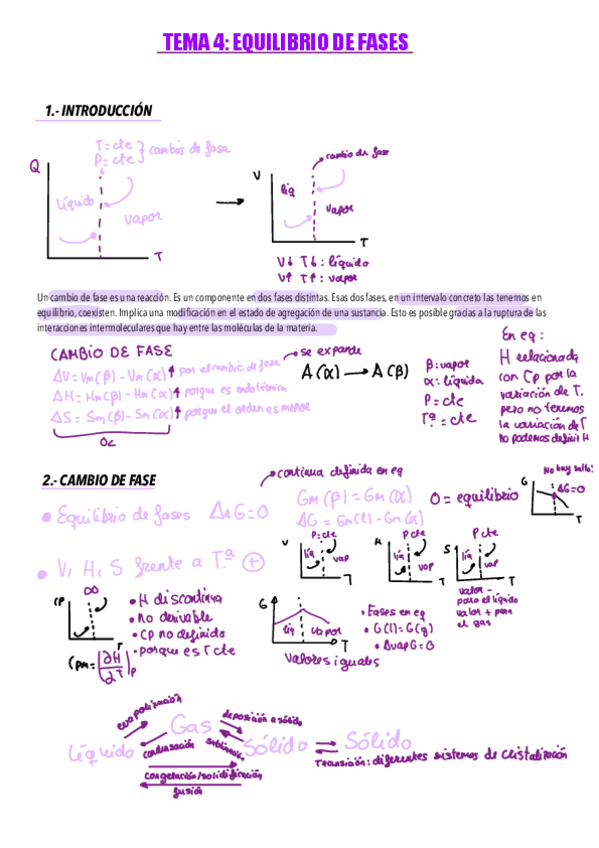 TEMA 4: EQUILIBRIO DE FASES
1.- INTRODUCCIÓN
T = cte
P = cte
cambio de fase
Q
líquido
vapor
T
cambio de fase
V
liq
vapor
T
V↓ T↓ : líquido
V↑ T↑ : vapor
Un cambio de fase es una reacción. Es un componente en dos fases distintas. Esas dos fases, en un intervalo concreto las tenemos en
equilibrio, coexisten. Implica una modificación en el estado de agregación de una sustancia. Esto es posible gracias a la ruptura de las
interacciones intermoleculares que hay entre las moléculas de la materia.
CAMBIO DE FASE
ΔV = Vm(β) - Vm(α) ↑ por el cambio de fase
ΔH = Hm(β) - Hm(α) ↑ porque es endotérmica
ΔS = Sm(β) - Sm(α) ↑ porque el orden es menor
se expande
A(α) → A(β)
β: vapor
α: líquida
P = cte
Tª = cte
En eq:
H relacionada
con Cp por la
variación de T,
pero no tenemos
la variación de T
no podemos definir H
2.- CAMBIO DE FASE
continua definida en eq
• Equilibrio de fases ΔG=0
Gm(β) = Gm(α)
0 = equilibrio
ΔG = Gm(l) - Gm(α)
No hay salto
G
ΔG=0
T
• V, H, S frente a Tª +
P=cte
V
liq
vap
T
P cte
H
liq
vap
T
P cte
S
liq
vap
T
valor -
para el líquido
valor + para
el gas
CP
∞
T
• H discontinua
• no derivable
• CP no definido
• porque es T cte
Cpm = (∂H/∂T)P
G
liq
vapor
T
valores iguales
• Fases en eq
• G(l) = G(g)
• ΔvapG = 0
evaporización
Gas
deposición a sólido
Líquido
condensación
sublimación
Sólido
Sólido
congelación/solidificación
fusión
Transición: diferentes sistemas de cristalización